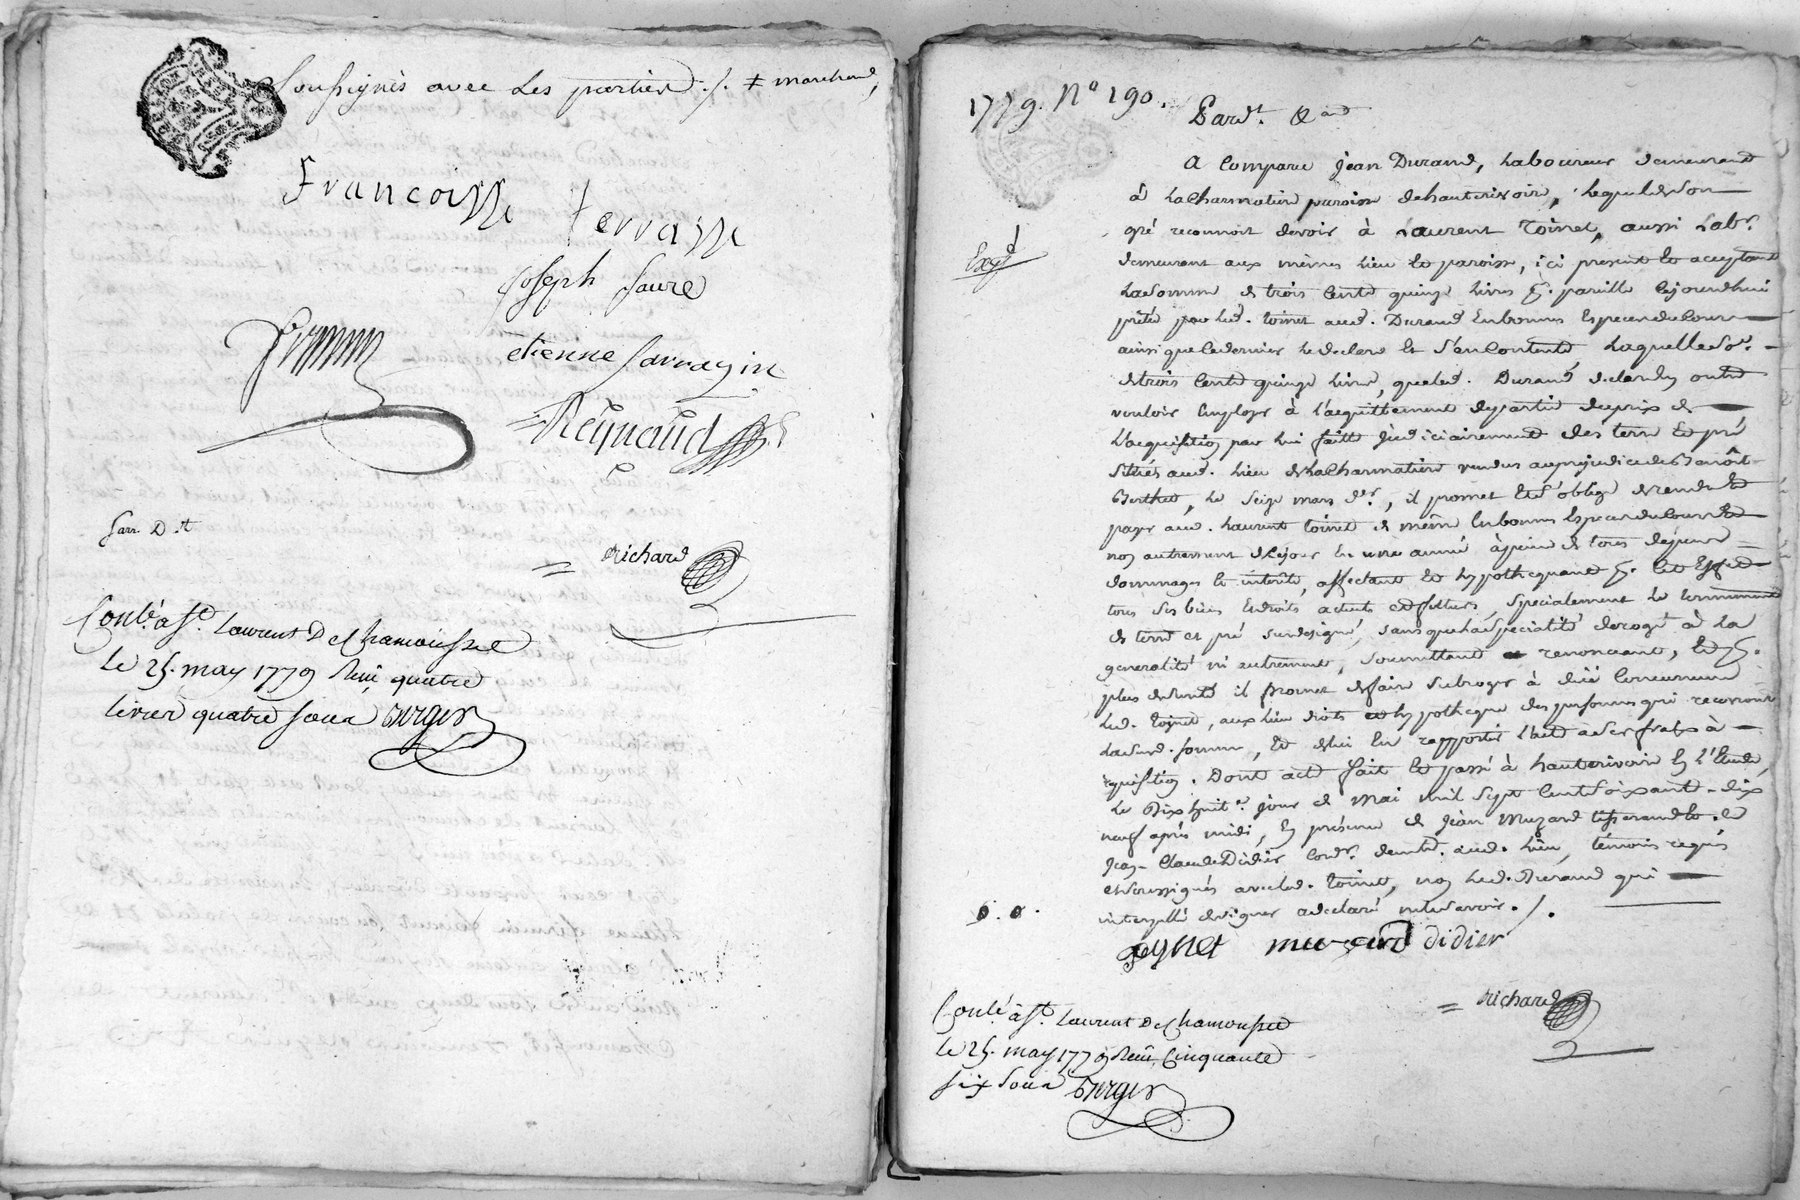 soussignés avec les parties ./. ‡ marchand,
Francoisse terrasse
Joseph faure
etienne sarrazin
Reynaud
Richard
Conlé a St. Laurent De Chamousset
le 25. may 1779 Reçu quatre
livres quatre sous Berger
1779. No 190.
Pardt. &a
Exp.d
A Comparu Jean Durand, Laboureur demeurant
à La Charmatiere paroisse de hauterivoire, lequel de son
gré reconnoit devoir à Laurent Toinet, aussi Labr.
demeurant aux mêmes lieu et paroisse, ici present et acceptant
la somme de trois Cents quinze livres p. pareille cejourd'hui
prêtée par led. toinet aud. Durand En bonnes Especes du Cours
ainsi que ce dernier le declare et s'en Contente, Laquelle so.e
de trois Cents quinze livres, que led. Durand declare
vouloir Employer à l'acquittement de partie du prix de
L'acquisition par lui faitte Judiciairement des terre et pré
situés aud. lieu de la Charmatiere vendus au préjudice de Benoît
Berthet, le seize mars d.er, il promet et s'oblige de rendre et
payer aud. Laurent toinet de même En bonnes Especes du Cours et
non autrement de ce jour En une année à peine de tous depens
dommages et interêts, affectant et hypothequant p. cet Effet
tous ses biens et droits actuels et futurs, specialement le tenement
de terre et pré susdesigné, sans que la specialité deroge à la
generalité ni autrement, soumettant renoncant, et p.
plus de sureté il promet de faire subroger à dûe Concurrence
led. toinet, aux lieu droits et hypotheque des personnes qui recevront
lad. somme, et de lui En rapporter l'acte à ses frais à
requisition. Dont acte fait et passé à hauterivoire En l'Etude,
Le Dix huite. jour de Mai mil sept Cent soixante-dix
neuf après midi, En présence de Jean Muzard tisserand et de
Jean-Claude Didier Cordr. demts. aud. lieu, témoins requis
et soussignés avec led. toinet, non led. Durand qui
interpellé de signer a declaré ne le savoir ./.
toynet muzard didier
Richard
Conlé à St. Laurent De Chamousset
le 25. may 1779 Reçu Cinquante
six sous Berger